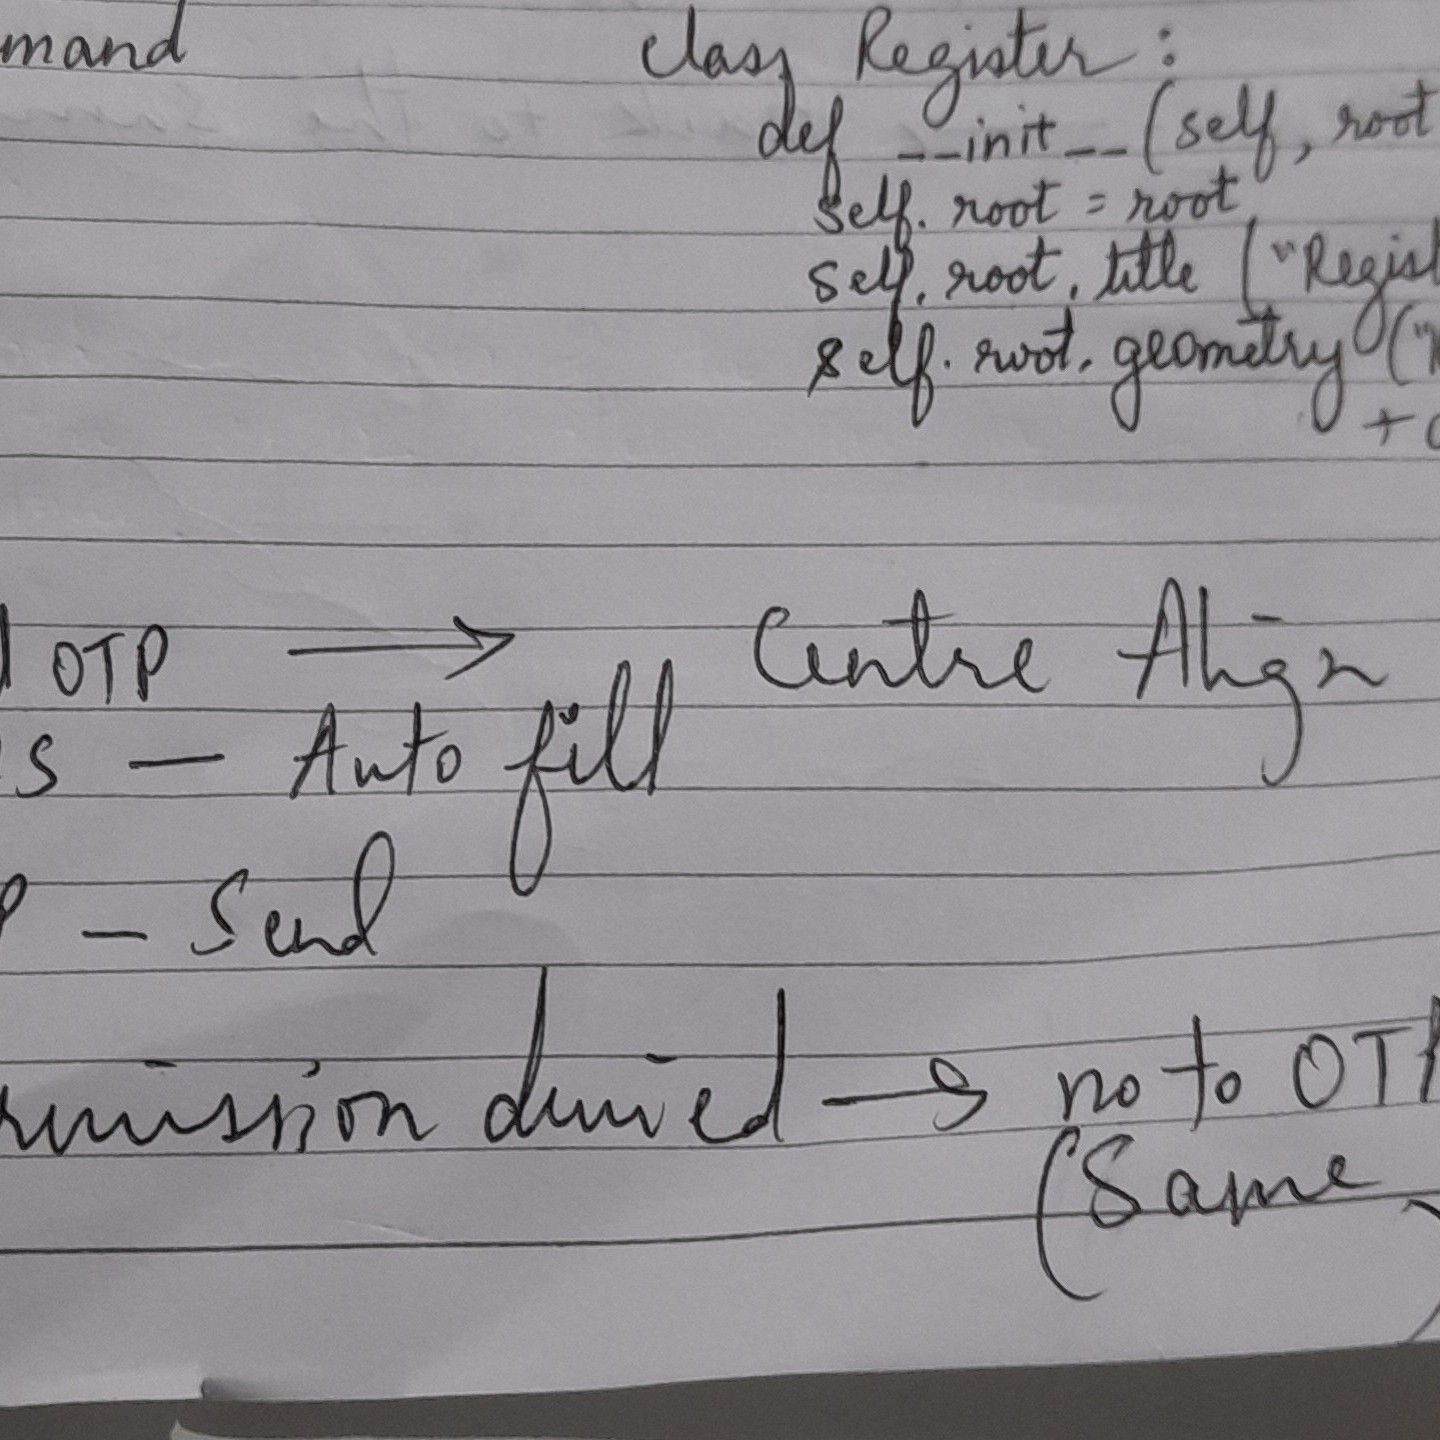 mand
class Register :
def __init__ (self, root
self. root = root
self. root. title ("Regist
self. root. geometry ("
+
OTP → Centre Align
s — Auto fill
P — Send
rmission denied → no to OTP
(Same
)